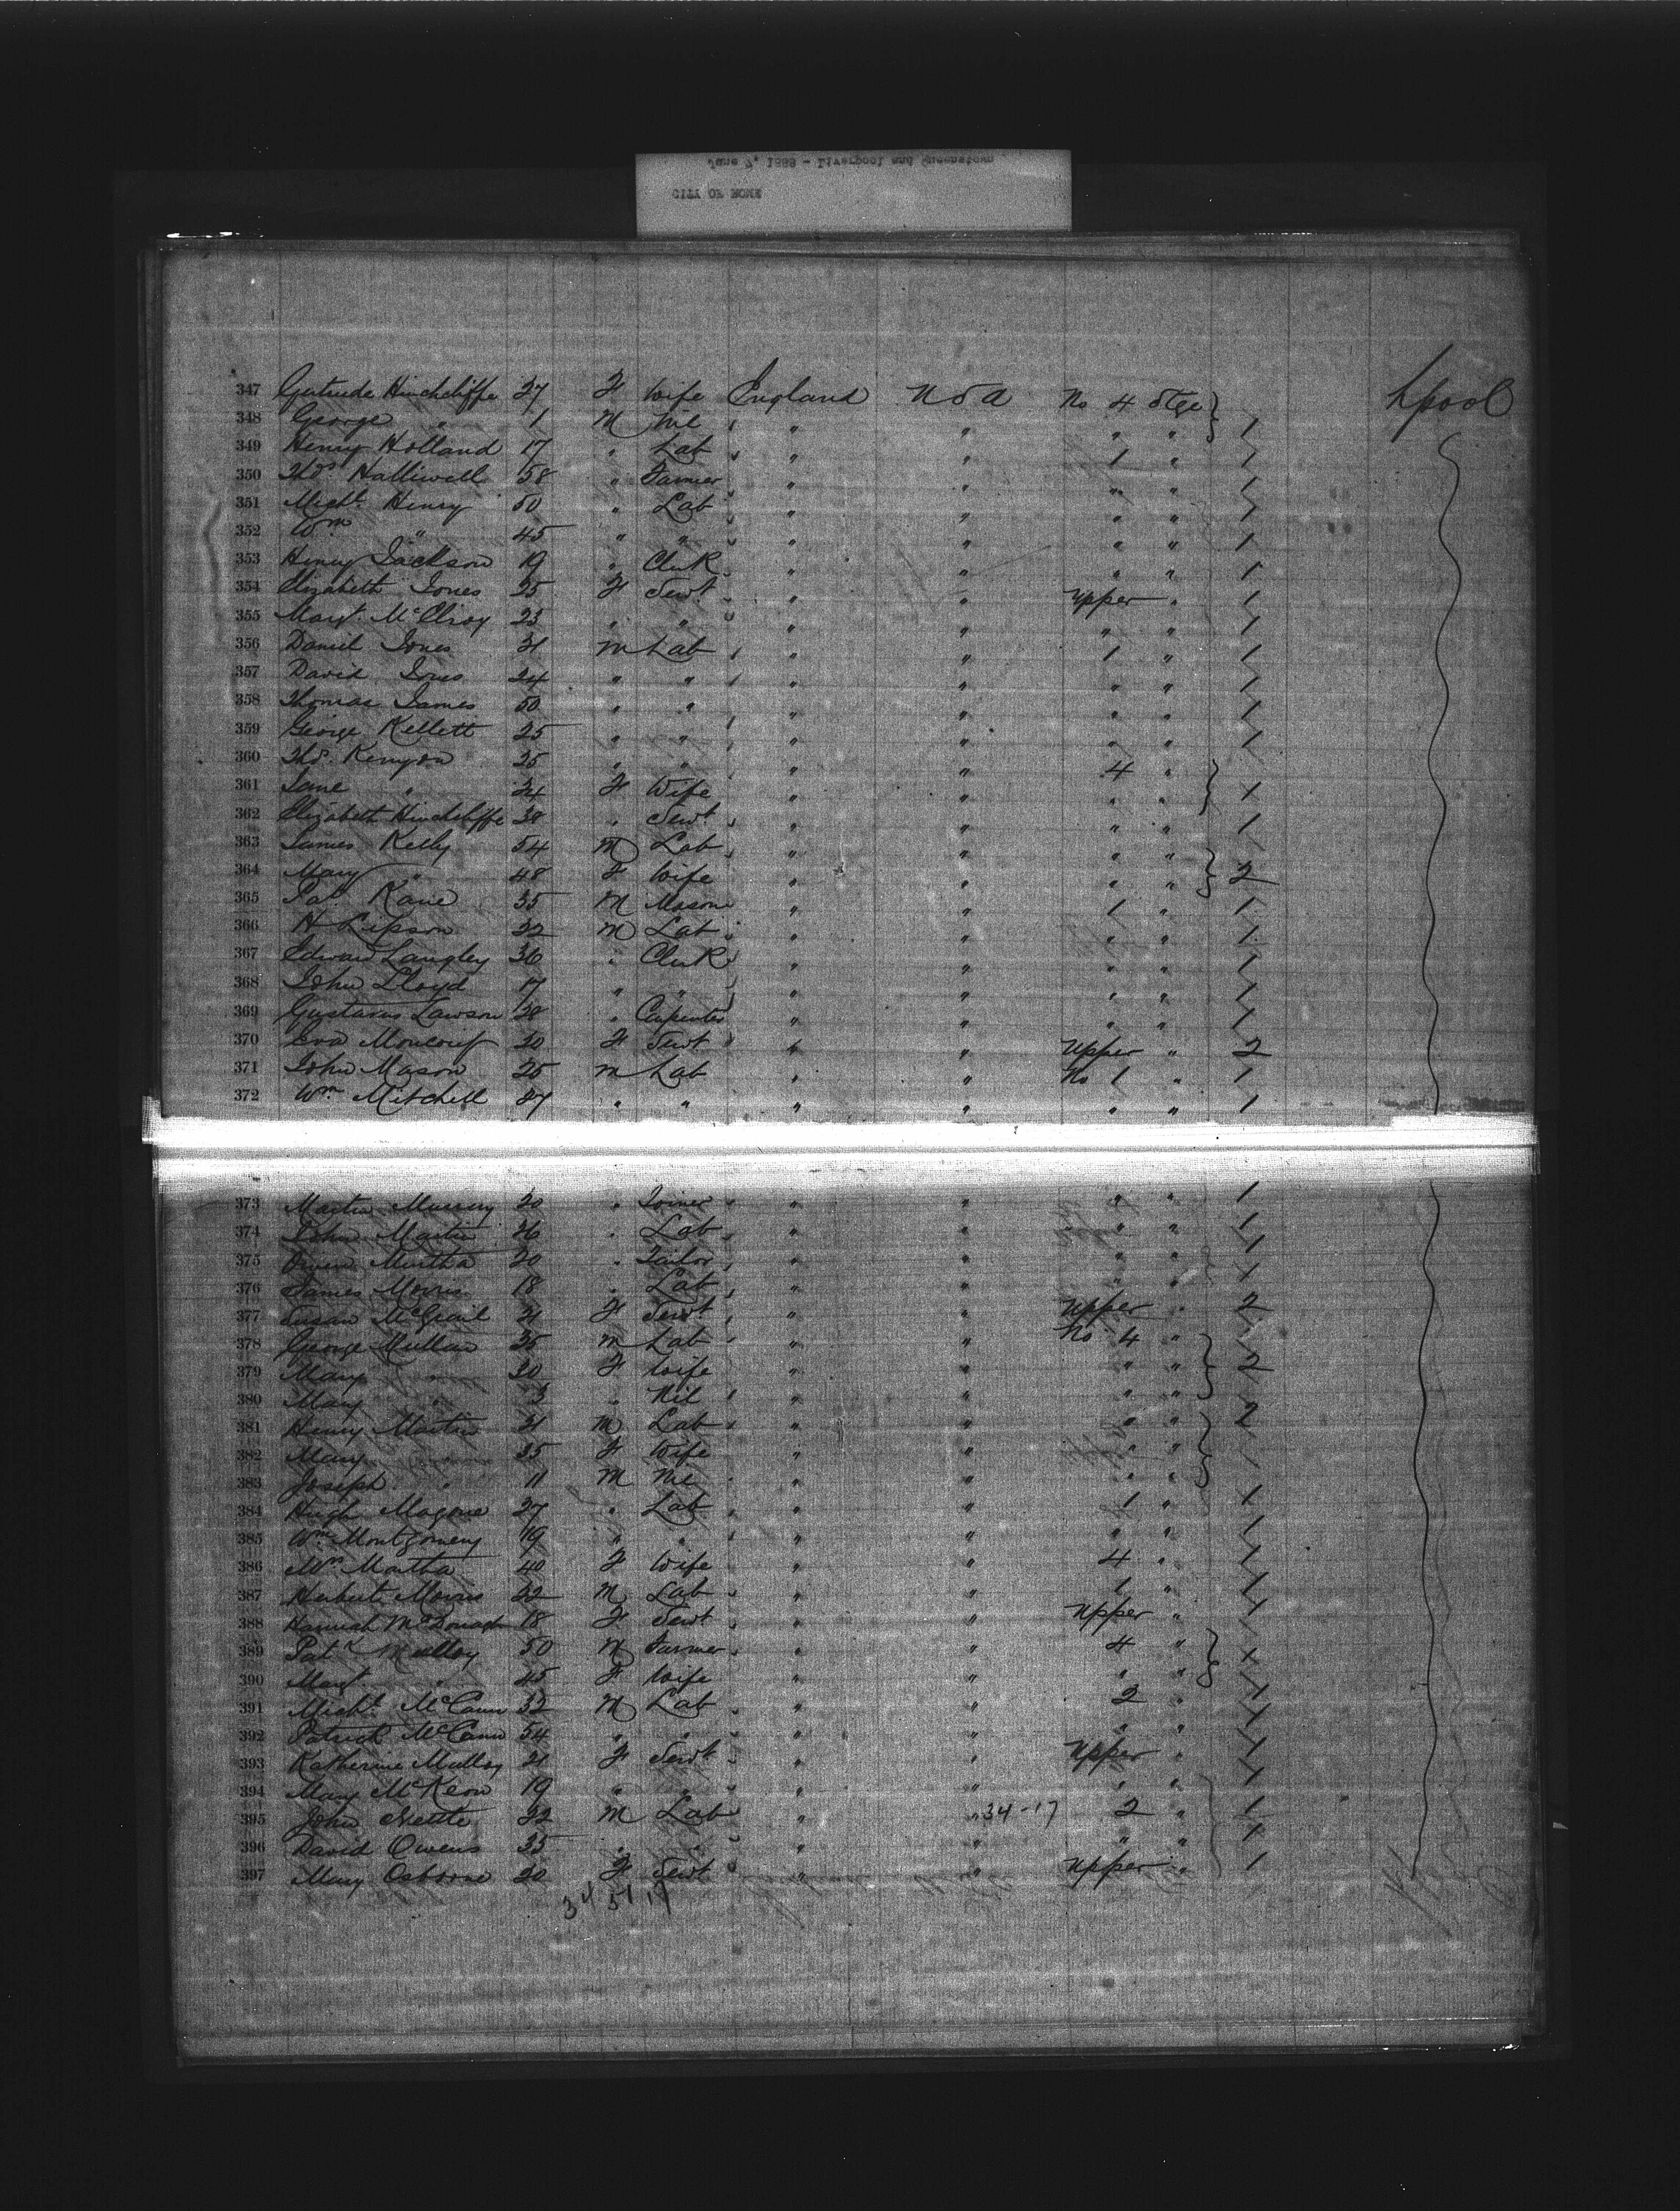 June 7, 1888 - Liverpool and Queenstown
CITY OF ROME
347 Gertrude Hinchcliffe 27 F Wife England U S A No 4 Stge } Lpool
348 George " 1 M Nil " " " " " 1
349 Henry Holland 17 " Lab " " " 1 " 1
350 Thos. Halliwell 58 " Farmer " " " " 1
351 Michl. Henry 50 " Lab " " " " 1
352 Wm " 45 " " " " " " 1
353 Henry Jackson 19 " Clerk " " " " 1
354 Elizabeth Jones 25 F Servt " " Upper " 1
355 Margt. McElroy 23 " " " " " " 1
356 Daniel Jones 31 M Lab " " 1 " 1
357 David Jones 24 " " " " " " 1
358 Thomas James 50 " " " " " " 1
359 George Kellett 25 " " " " " " 1
360 Thos. Kenyon 25 " " " " 4 " }
361 Jane " 24 F Wife " " " " 1
362 Elizabeth Hinchcliffe 38 " Servt " " " " 1
363 James Kelly 54 M Lab " " " " }
364 Mary " 48 F Wife " " " " 2
365 Pat. Kane 35 M Mason " " 1 " 1
366 H Lipson 22 M Lab " " " " 1
367 Edward Langley 36 " Clerk " " " " 1
368 John Lloyd 17 " " " " " " 1
369 Gustavus Lawson 28 " Carpenter " " " " 1
370 Eva Moncrief 20 F Servt " " Upper " 2
371 John Mason 25 M Lab " " No 1 " 1
372 Wm. Mitchell 27 " " " " " " 1
373 Martin Murray 20 " Joiner " " " " 1
374 John Martin 26 " Lab " " " " 1
375 Owen Murtha 20 " Tailor " " " " 1
376 James Morris 18 " Lab " " " " 1
377 Susan McGrail 21 F Servt " " Upper " 2
378 George Mullan 35 M Lab " " No 4 " }
379 Mary " 30 F Wife " " " " 2
380 Mary " 3 " Nil " " " "
381 Henry Martin 31 M Lab " " " " } 2
382 Mary " 35 F Wife " " " "
383 Joseph " 11 M Nil " " " "
384 Hugh Magone 27 " Lab " " 1 " 1
385 Wm. Montgomery 19 " " " " " " 1
386 Mrs. Murtha 40 F Wife " " 4 " 1
387 Herbert Morris 22 M Lab " " 1 " 1
388 Hannah McDonagh 18 F Servt " " Upper " 1
389 Pat Mulloy 50 M Farmer " " 4 " }
390 Margt " 45 F Wife " " " "
391 Michl. McCann 32 M Lab " " 2 " 1
392 Patrick McCann 54 " " " " " " 1
393 Katherine Mulloy 21 F Servt " " Upper " 1
394 Mary McKeon 19 " " " " " " 1
395 John Nettle 22 M Lab " " 34-17 2 " 1
396 David Owens 35 " " " " " " 1
397 Mary Osborne 20 F Servt " " Upper " 1
34 51 17